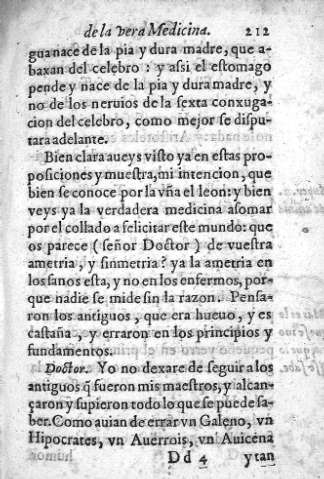 de la vera Medicina. 212
gua nace de la pia y dura madre, que a-
baxan del celebro : y assi el estomago
pende y nace de la pia y dura madre, y
no de los neruios de la sexta conxuga
cion del celebro, como mejor se dispu-
tara adelante.
Bien clara aueys visto ya en estas pro-
posiciones y muestra, mi intencion, que
bien se conoce por la vña el leon: y bien
veys ya la verdadera medicina asomar
por el collado a felicitar este mundo: que
os parece ( señor Doctor ) de vuestra
ametria, y sinmetria? ya la ametria en
los sanos esta, y no en los enfermos, por-
que nadie se mide sin la razon. Pensa-
ron los antiguos, que era hueuo, y es
castaña, y erraron en los principios y
fundamentos.
Doctor. Yo no dexare de seguir a los
antiguos q̃ fueron mis maestros, y alcan-
çaron y supieron todo lo que se puede sa-
ber. Como auian de errar vn Galeno, vn
Hipocrates, vn Auerrois, vn Auicena
Dd 4 y tan